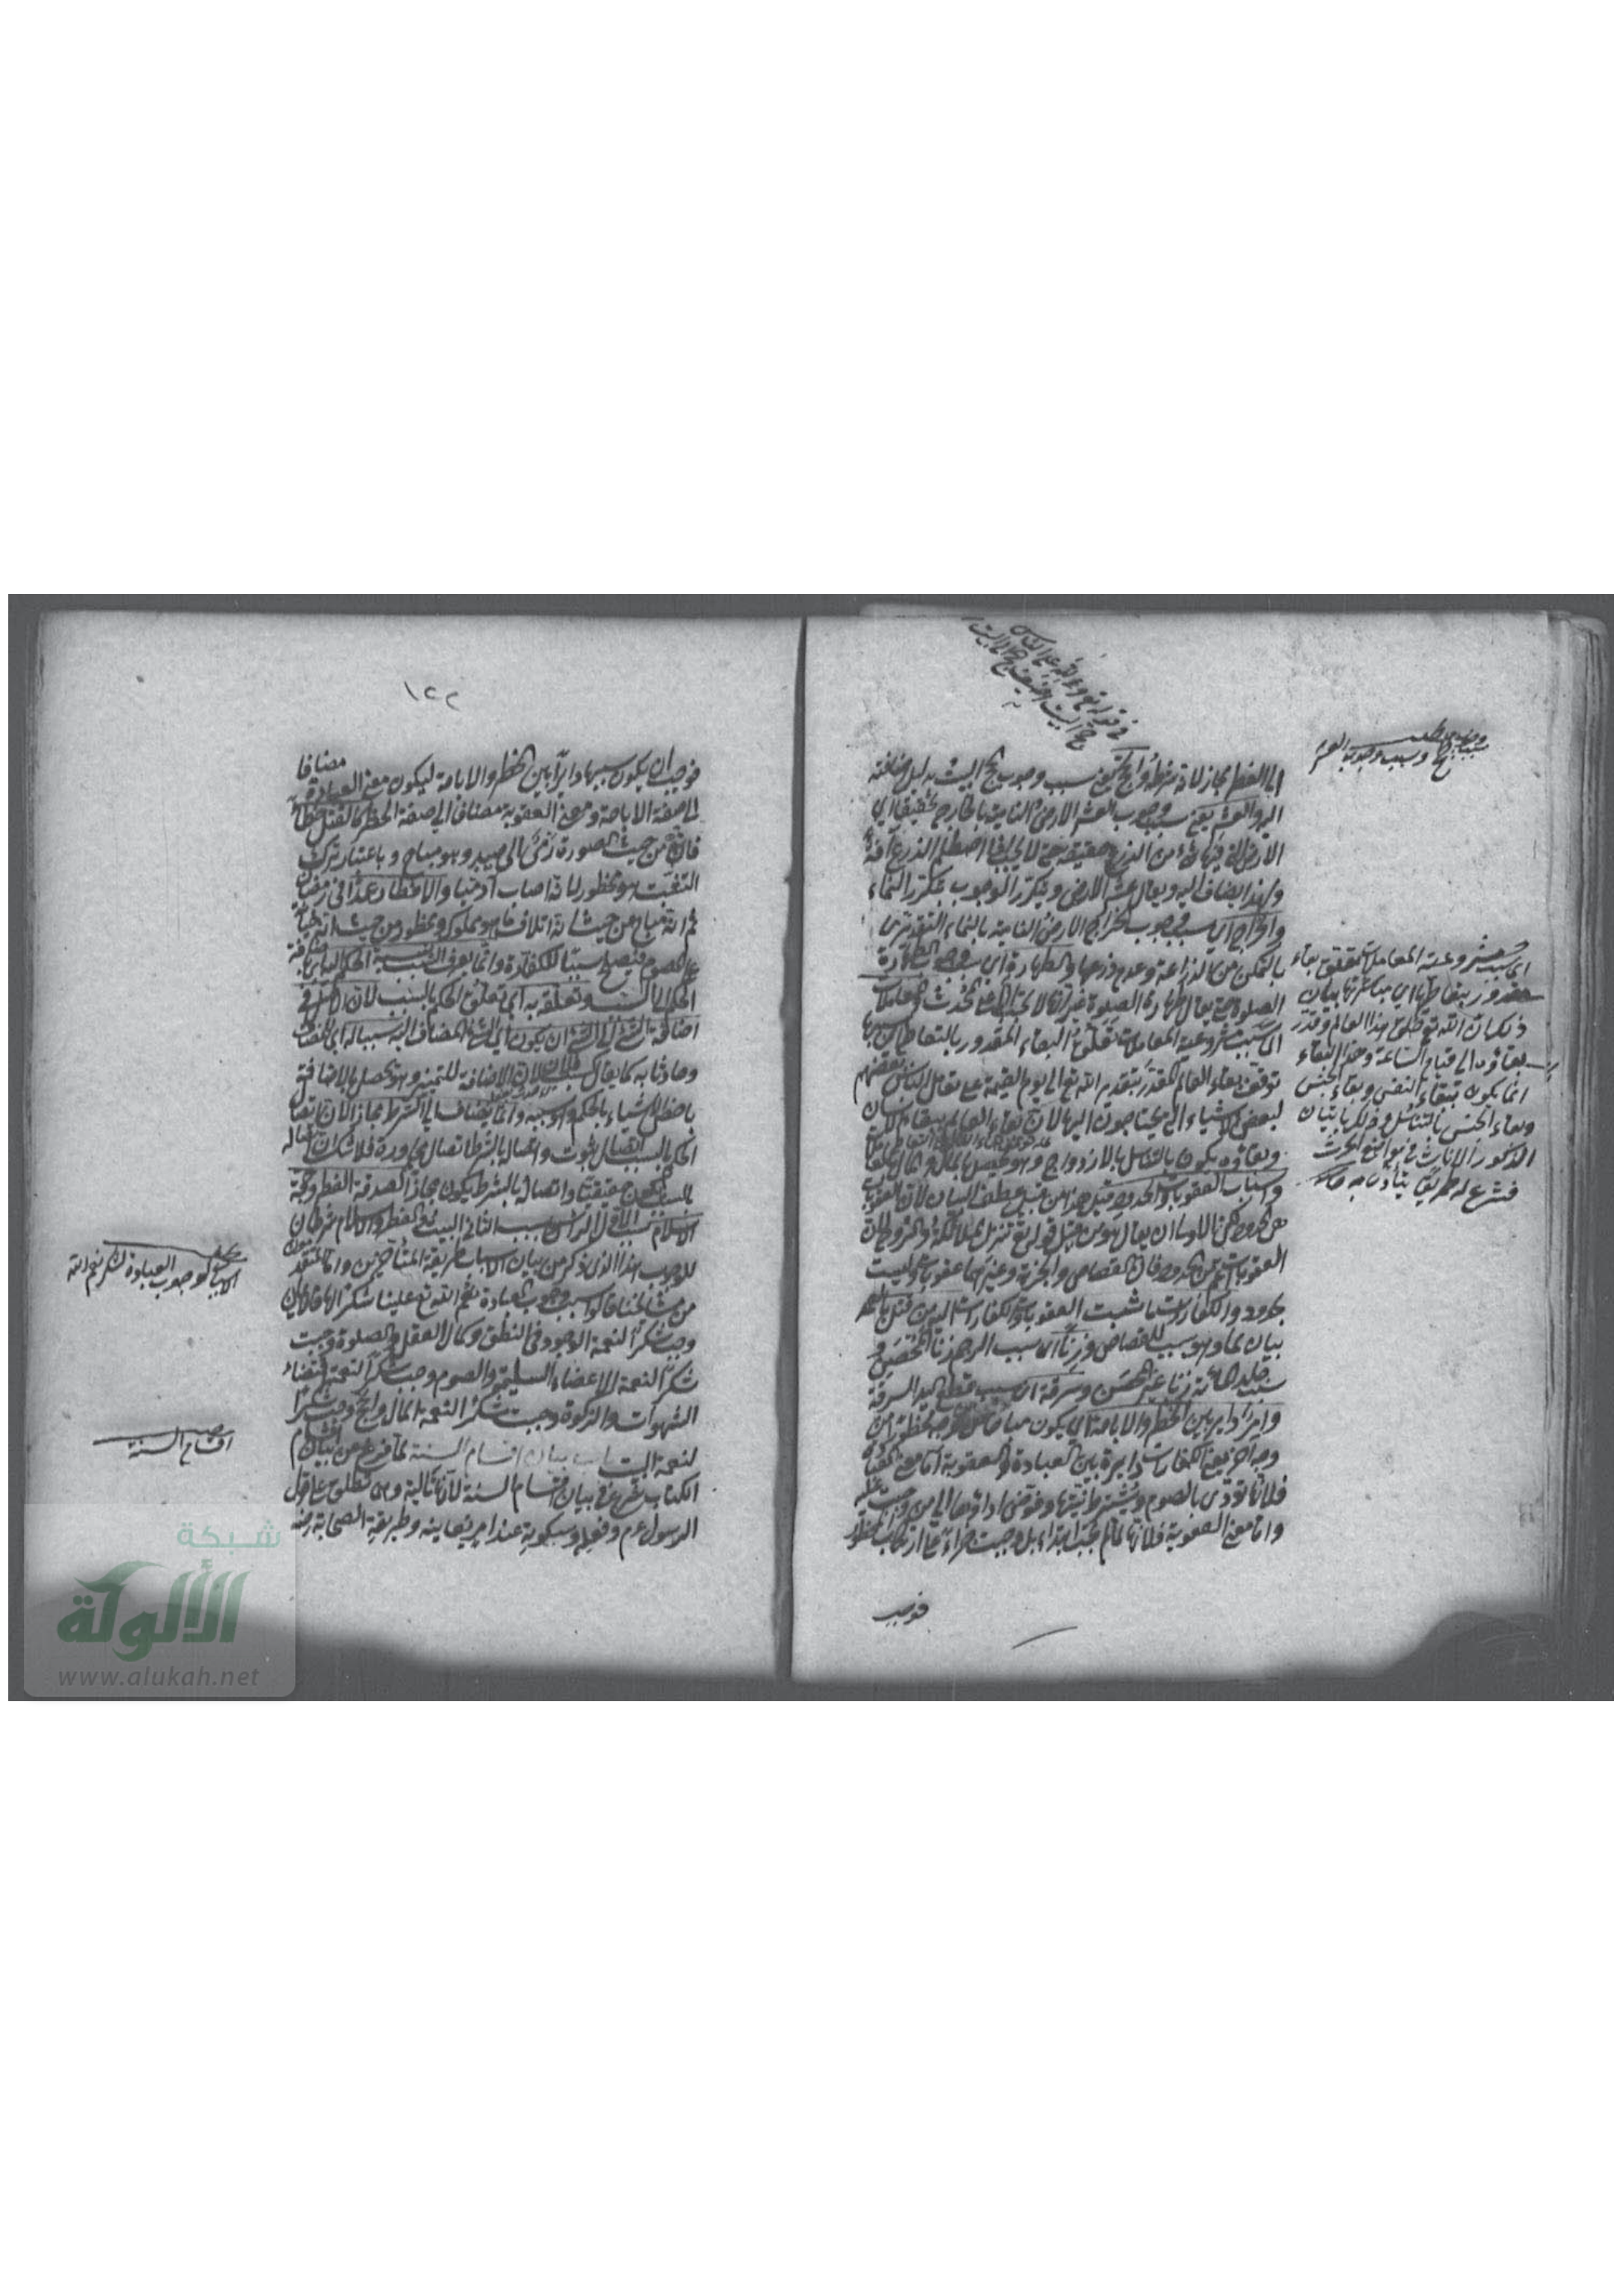 الى الفطر مجاز لانه شرط والحج يعنى سبب وجوب الحج البيت بدليل اضافته
اليه والعشر يعنى سبب وجوب العشر الارض النامية بالخارج تحقيقا اى
الارض التى فيها شئ من الزرع حقيقة حتى لا يجب اذا اصطلم الزرع آفة
ولهذا يضاف اليه ويقال عشر الارض ويتكرر الوجوب بتكرر النماء
والخراج اى سبب وجوب الخراج الارض النامية بالنماء التقديرى
بالتمكن من الزراعة وعدم زرعها والطهارة اى سبب وجوب الطهارة
الصلوة حتى يقال طهارة الصلوة غير انها لا يجب الا على المحدث والمعاملات
اى سبب مشروعية المعاملات تعلق البقاء المقدور بالتعاطى اى
توقف بقاء العالم المقدر بتقدير الله تعالى الى يوم القيمة على تعامل الناس بعضهم
لبعض الاشياء التى يحتاجون اليها لان بقاء العالم ببقاء الانسان
وبقاؤه يكون بالتناسل بالازدواج وهو يحصل بالمال
واسباب العقوبات والحدود
هى الحدود لكن الاولى ان يقال هو من قبيل قوله تع تنزل الملائكة والروح لان
العقوبات اعم من الحدود فان القصاص والجزية وغيرهما عقوبات وليست
بحدود والكفارات ما نسبت العقوبات والكفارات اليه من قتل
بيان لما وهو سبب للقصاص وزنا اى سبب الرجم زنا المحصن و
سبب جلد مائة زنا غير المحصن وسرقة اى سبب قطع اليد السرقة
وامر دائر بين الحظر والاباحة اى يكون مباحا من وجه محظورا من
وجه آخر يعنى الكفارات دايرة بين العبادة والعقوبة اما معنى العبادة
فلانها تؤدى بالصوم ويشترط نيتها وفوض اداؤها الى من وجبت عليه
واما معنى العقوبة فلانها لم تجب ابتداء بل وجبت جزاء على ارتكاب محظور
فوجب
فى قوله تع ولله على الناس
حج البيت
سبب وجوب الحج وسبب وجوب العشر
اى سبب مشروعية المعاملات تعلق بقاء
مقدور بتعاطيها اى مباشرتها بيان
ذلك ان الله تع خلق هذا العالم وقدر
بقاؤه الى قيام الساعة وهذا البقاء
انما يكون ببقاء النفس وبقاء الجنس
وبقاء الجنس بالتناسل وذلك باتيان
الذكور الاناث فى مواضع الحرث
فشرع له طريق يتأدى به
١٢٢
فوجب ان يكون سببها دائرا بين الحظر والاباحة ليكون معنى العبادة مضافا
الى صفة الاباحة ومعنى العقوبة مضافا الى صفة الحظر كالقتل خطأ
فانه من حيث الصورة رمى الى صيد وهو مباح وباعتبار ترك
التثبت هو محظور لانه اصاب آدميا والافطار عمدا فى رمضان
ثم انه مباح من حيث انه اتلاف ما هو مملوك ومحظور من حيث انه جناية
على الصوم فيصلح سببا للكفارة وانما يعرف السبب بنسبة الحكم اليه اى اضافة
الحكم الى السبب وتعلقه به اى تعلق الحكم بالسبب لان الاصل فى
اضافة الشئ الى الشئ ان يكون اى الشئ المضاف اليه سببا له اى للمضاف
وحادثا به كما يقال كسب فلان لان الاضافة للتمييز وهو يحصل بالاضافة
باخص الاشياء بالحكم وهو سببه وانما يضاف الى الشرط مجازا لان اتصال
الحكم بالسبب اتصال ثبوت واتصاله بالشرط اتصال مجاورة فلا شك ان اتصاله
بالسبب يكون حقيقيا واتصاله بالشرط يكون مجازا كصدقة الفطر وحجة
الاسلام سبب الاول الرأس وسبب الثانى البيت والفطر والاسلام شرطان
للوجوب هذا الذى ذكر من بيان الاسباب طريقة المتأخرين واما المتقدمون
من مشايخنا قالوا سبب وجوب العبادة نعم الله تع علينا شكرا لها فالايمان
وجب شكرا لنعمة الوجود وفى النطق وكمال العقل والصلوة وجبت
شكرا لنعمة الاعضاء السليمة والصوم وجب شكرا لنعمة اقتضاء
الشهوات والزكوة وجبت شكرا لنعمة المال والحج وجب شكرا
لنعمة البيت باب بيان اقسام السنة لما فرغ من بيان اقسام
الكتاب شرع فى بيان اقسام السنة لانها تالية وهى تطلق على قول
الرسول عم وفعله وسكوته عند امر يعاينه وطريقة الصحابة رضه
الاسباب لوجوب العبادة شكر نعم الله
اقسام السنة
شبكة
الألوكة
www.alukah.net